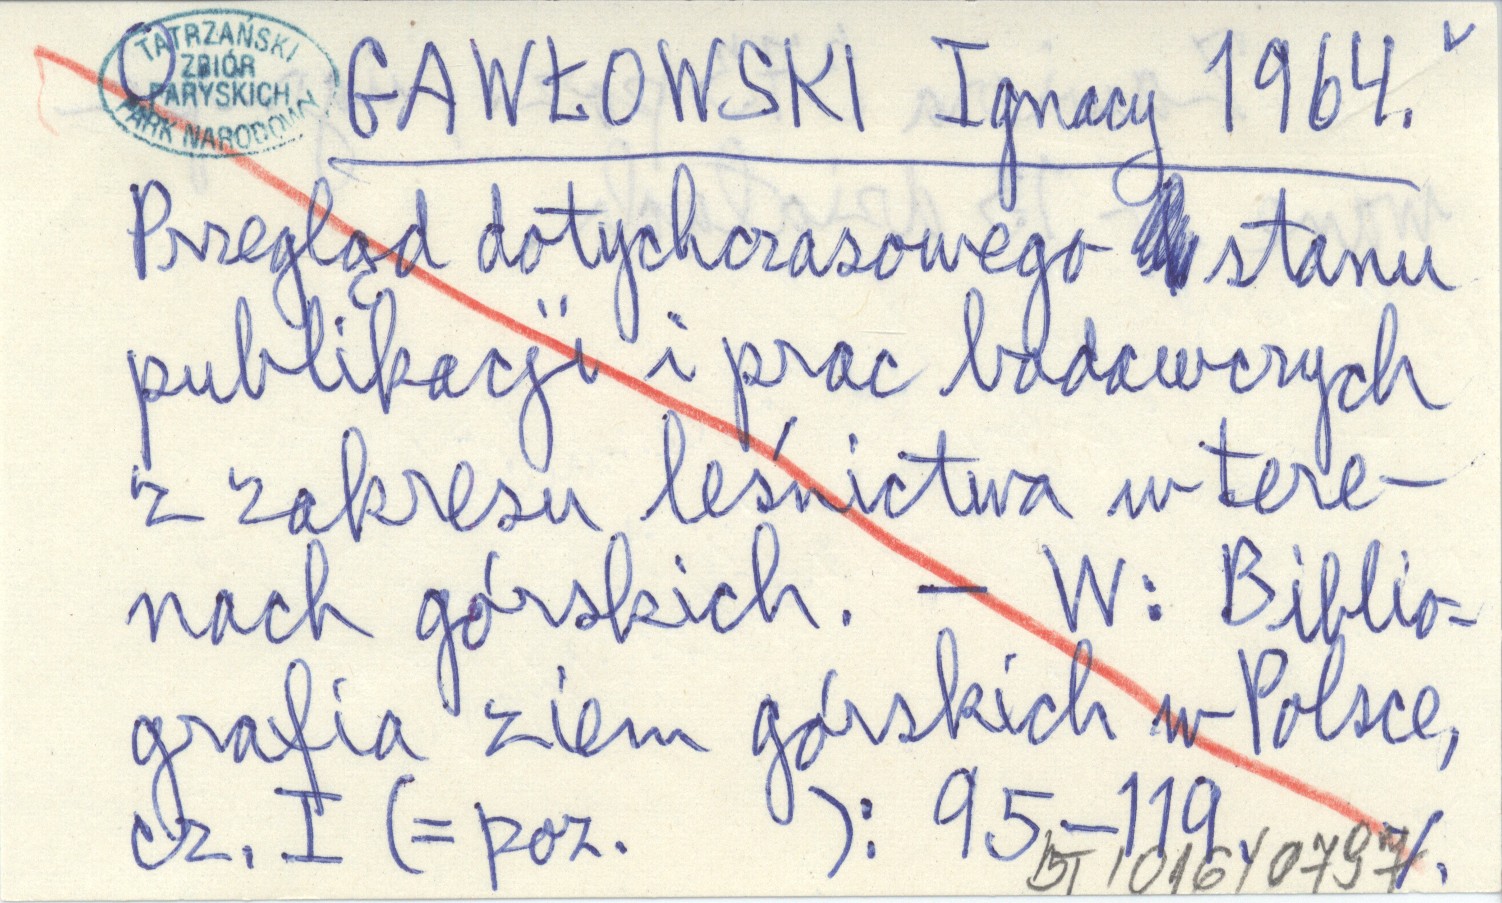 TATRZAŃSKI
ZBIÓR
PARYSKICH
PARK NARODOWY
GAWŁOWSKI Ignacy 1964.
Przegląd dotychczasowego stanu
publikacji i prac badawczych
z zakresu leśnictwa w tere-
nach górskich. – W: Biblio-
grafia ziem górskich w Polsce,
cz. I (= poz. ): 95–119.
BT/016/0797 ./.